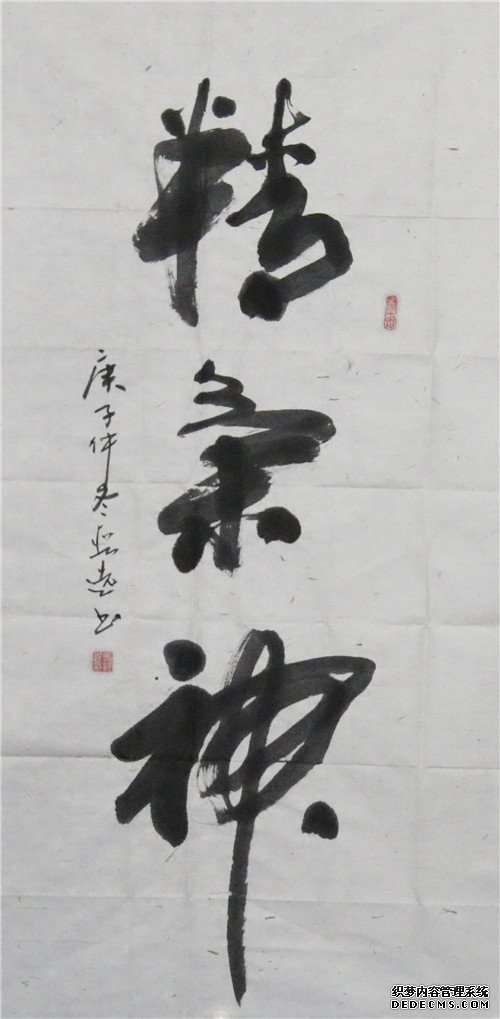 精氣神
庚子仲冬志遠书
织梦内容管理系统
DEDECMS.COM